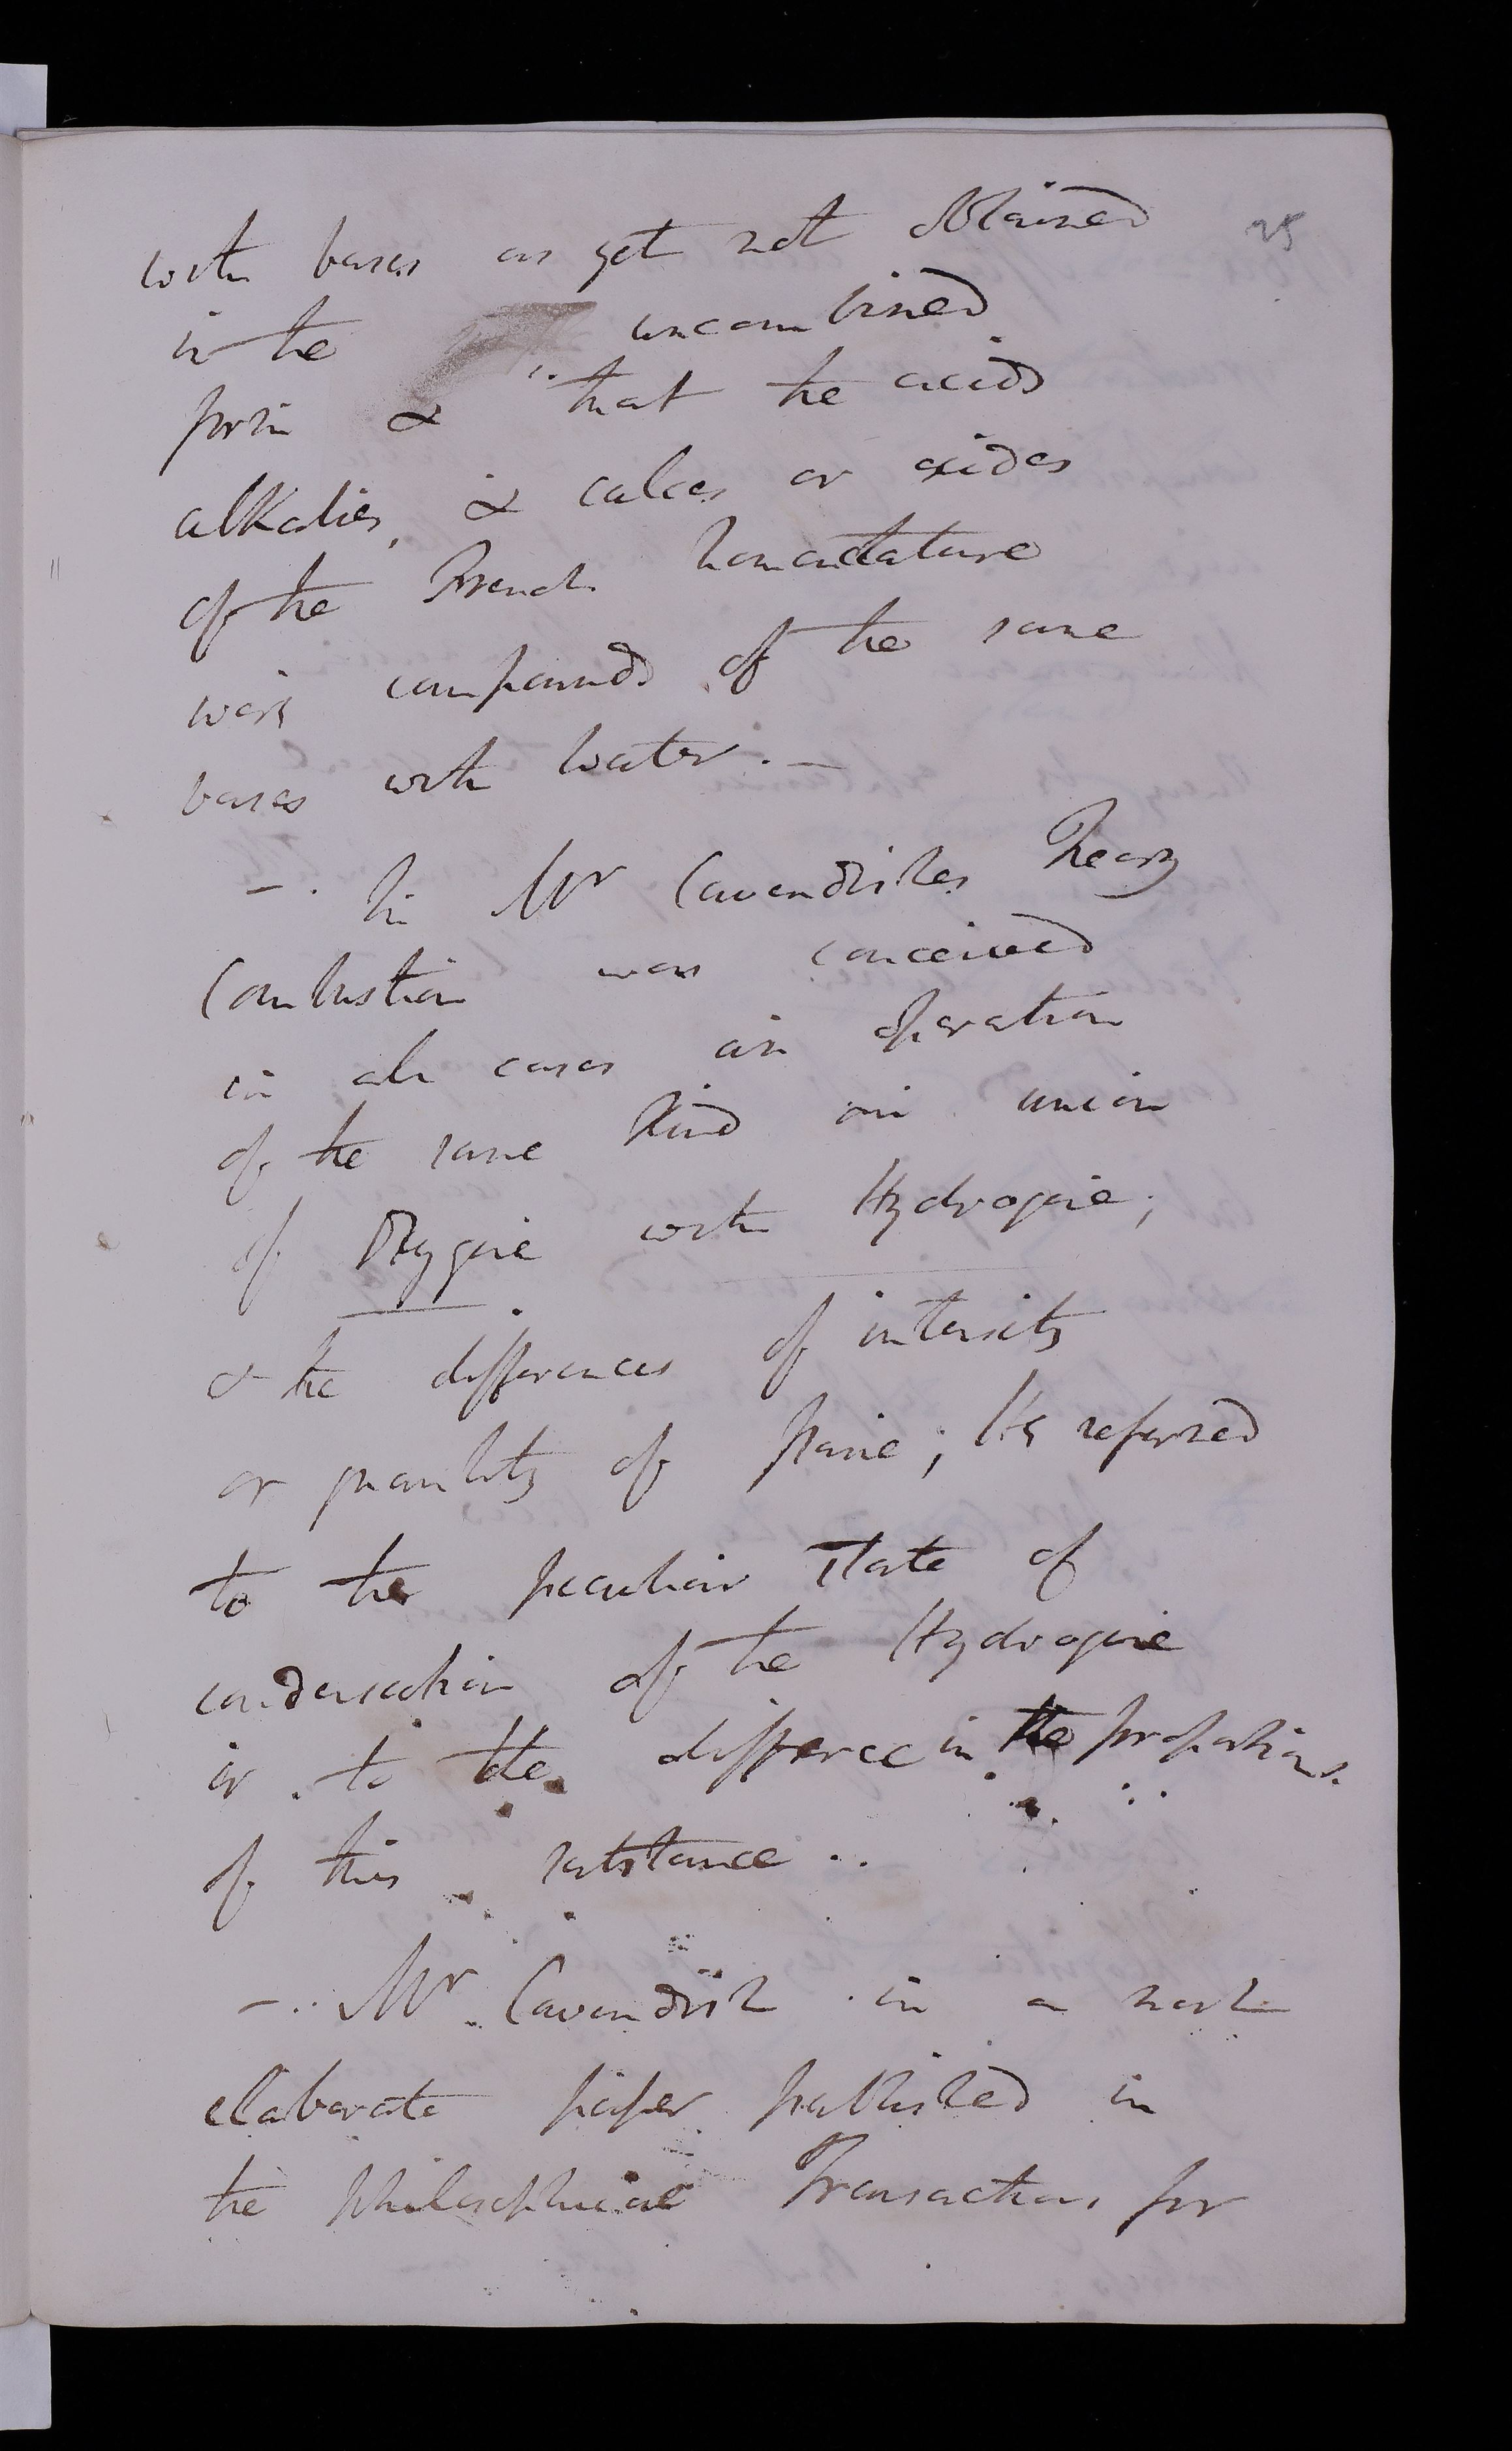 25
with bases as yet not obtained
in the uncombined
form & that the acids
alkalies, & calces or oxides
of the French Nomenclature
were compounds of the same
bases with water. —
— . In Mr Cavendishes Theory
Combustion was conceived
in all cases an operation
of the same kind an union
of Oxygene with Hydrogene;
& the differences of intensity
or quantity of flame; He referred
to the peculiar State of
condensation of the Hydrogene
or to the difference in the proportions.
of this substance ..
— .. Mr Cavendish in a most
elaborate paper published in
the Philosophical Transactions for